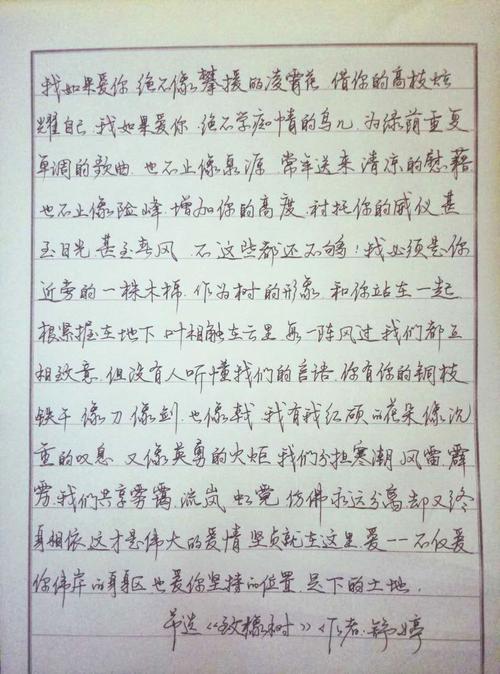 我如果爱你 绝不像攀援的凌霄花 借你的高枝炫
耀自己 我如果爱你 绝不学痴情的鸟儿 为绿荫重复
单调的歌曲 也不止像泉源 常年送来清凉的慰藉
也不止像险峰 增加你的高度 衬托你的威仪 甚
至日光 甚至春风 不 这些都还不够！我必须是你
近旁的一株木棉 作为树的形象 和你站在一起
根紧握在地下 叶相触在云里 每一阵风过 我们都互
相致意 但没有人听懂我们的言语 你有你的铜枝
铁干 像刀 像剑 也像戟 我有我红硕的花朵 像沉
重的叹息 又像英勇的火炬 我们分担寒潮 风雷 霹
雳 我们共享雾霭 流岚 虹霓 仿佛永远分离 却又终
身相依 这才是伟大的爱情 坚贞就在这里 爱——不仅爱
你伟岸的身躯 也爱你坚持的位置 足下的土地.
节选《致橡树》作者:舒婷